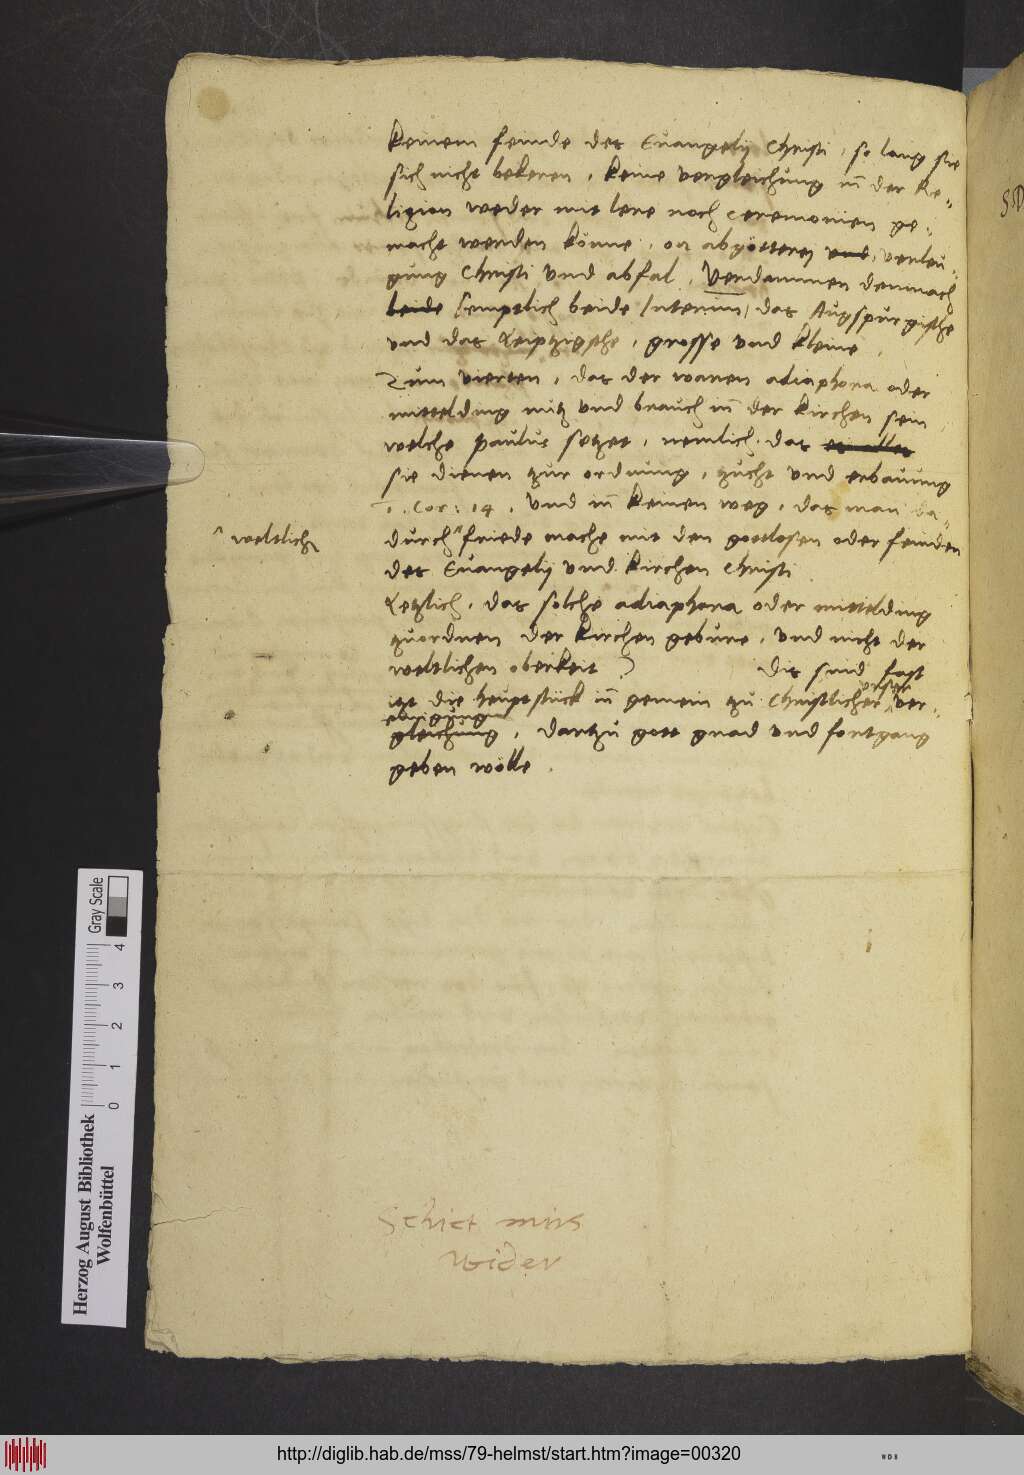 keinem feinde des Euangelij Christi, so lang sie
sich nicht bekeren, keine vergleichung in̄ der Re„
ligion weder mit lere noch ceremonien ge„
macht werden könne, on abgötterej und, verleu„
gung Christi und abfal. Verdammen demnach
beide semptlich beide Interim, das Augspurgische
und das Leiptzigsche, grosse und kleine.
Zum vierten, das der waren adiaphora oder
mittelding nutz und brauch in̄ der kirchen sein
welche paulus setzet, nemlich, das es alles
sie dienen tzur ordnung, tzucht und erbauung
1. Cor: 14. Und in̄ keinen weg, das man da„
^ weltlich
durch ^ friede mache mit den gottlosen oder feinden
des Euangelij und kirchen Christi
Letzlich, das solche adiaphora oder mittelding
tzuordnen der kirchen gebure, und nicht der
weltlichen oberkeit. Dis sind fast
unser
itzt die heuptstück in̄ gemein tzu Christlicher ^ ver„
einigunge
gleichung, dartzu gott gnad und fortgang
geben wölle.
Schict mirs
wider
SD
Gray Scale
0 1 2 3 4
Herzog August Bibliothek
Wolfenbüttel
http://diglib.hab.de/mss/79-helmst/start.htm?image=00320